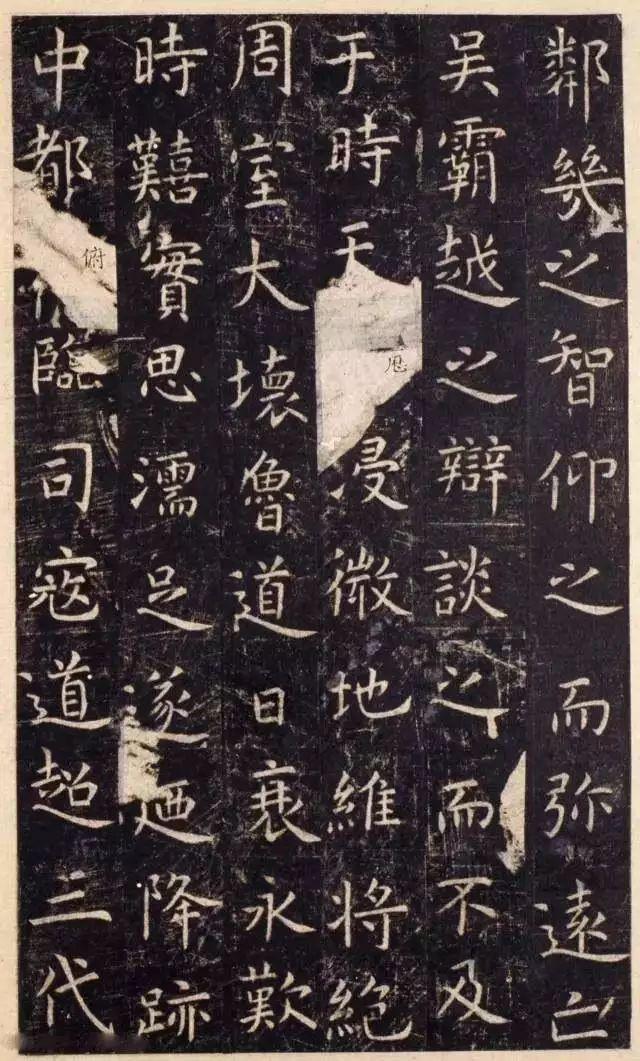 鄰幾之智仰之而弥遠亡
吴霸越之辯談之而不及
于時天浸微地維将絕
周室大壞魯道日衰永歎
時囏實思濡足遂迺降跡
中都俯臨司寇道超三代